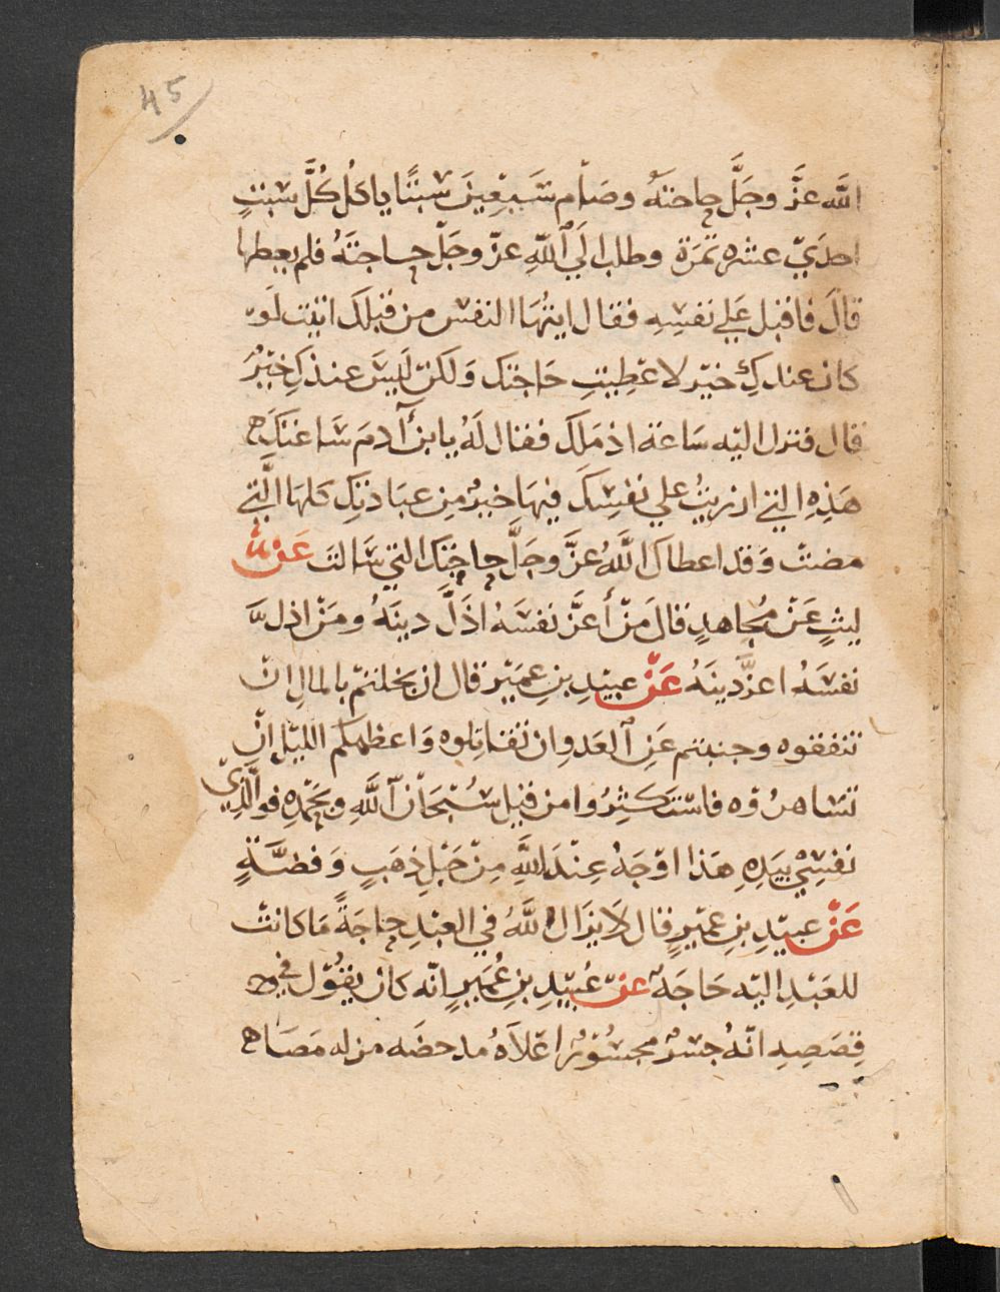 45
الله عَزَّ وجَلَّ حاجته وصَام سَبعِين سبتًا ياكل كُلَّ سبتٍ
احدَي عشره تمَرَة وطلب الَي اللهِ عزّ وجَلّ حاجتَهُ فلم يعطها
قالَ فاقبل عَلي نفسِهِ فقال ايتُهَا النفس من قبلك اتيت لَو
كان عندكِ خيْر لاعْطِيتِ حَاجتك وَلكن لَيسَ عندكِ خيْرُ
قال فنزل اليْه سَاعة اذ مَلَك فقال لَهُ يا ابن آدمَ سَاعتكَ
هَذِهِ التي ازريتَ علي نفسِكَ فيهَا خيرُ مِن عبَادتِكَ كلهَا الَّتي
مضتْ وَقد اعطاك اللَّهُ عزَّ وجَلَّ حاجتك التي سَالتَ عَن
ليثٍ عَنْ مُجاهدٍ قالَ مَنْ أعزَّ نفسَهُ اذَلَّ دينَهُ ومَنْ اذلَّ
نفسَهُ اعزَّ دينَهُ عَنْ عبيْدِ بنِ عميَرْ قال ان بخلتمْ بالمالِ انْ
تنفقوه وجبنتم عَنِ العَدوِ ان تقاتِلوه وَاعظمكم الليْل انْ
تساهرُوه فاسْتكثِرُوا من قبل سُبْحَانَ اللَّهِ وبحَمْدِهِ فوالَّذِي
نفسِيْ بيَدِهِ هَذا اوْجَهُ عِنْدَ اللَّهِ مِنْ جَبَلِ ذهَبٍ وَفضَّةٍ
عَنْ عبيْدِ بنِ عميْرٍ قال لَا يزَال للَّهُ في العبْدِ حاجَةً مَا كانتْ
للعَبْدِ اليْه حَاجَة عنْ عُبيْدِ بنِ عُمَيرٍ انّه كان يقوُل في
قِصَصِهِ انّهُ جسْرُ مجسُوْرُ اعْلاَهُ مدحضَه مزله